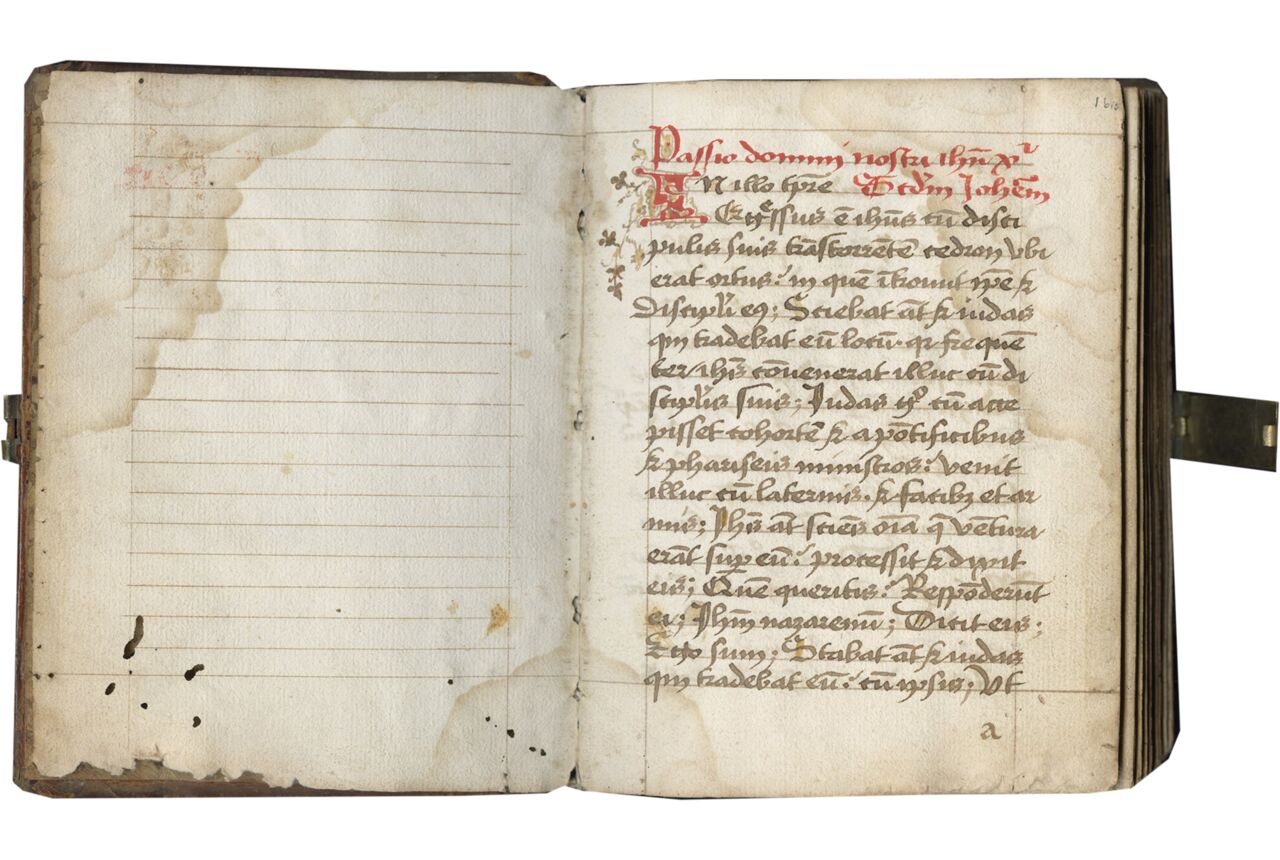 Passio domini nostri ihū xpi
IN illo tpre Scdm Johem
Egressus ē ihūs cū disci
pulis suis trāstorrētē cedron vbi
erat ortus: in quē ītrouit ipē &
discipli eꝰ; Sciebat āt & iudas
qui tradebat eū locū. qr frequē
ter ihs cōuenerat illuc cū di
sciplis suis; Judas gͦ cū acce
pisset cohortē & a pōtificibus
& phariseis ministros: venit
illuc cū laternis. & facibꝫ et ar
mis; Jhs āt sciēs oīa q vētura
erāt sup eū: processit & dixit
eis; Quē queritis: Respōderūt
ei; Jhm nazarenū; Dicit eis;
Ego sum; Stabat āt & iudas
qui tradebat eū: cū ipsis; Vt
a